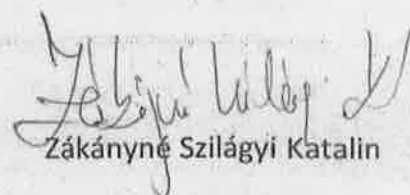 Zákányné Szilágyi Katalin